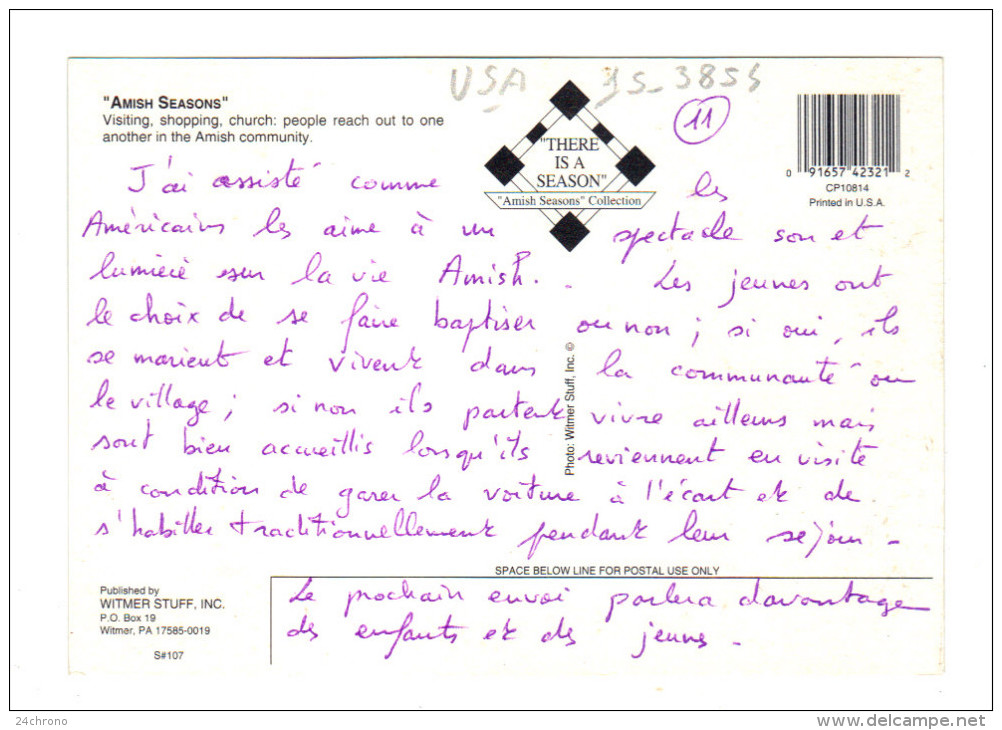 USA 15-3854
"AMISH SEASONS"
Visiting, shopping, church: people reach out to one
another in the Amish community.
11
"THERE
IS A
SEASON"
"Amish Seasons" Collection
0 91657 42321 2
CP10814
Printed in U.S.A.
J'ai assisté comme les
Américains les aime à un spectacle son et
lumière sur la vie Amish.. Les jeunes ont
le choix de se faire baptiser ou non ; si oui, ils
se marient et vivent dans la communauté ou
le village ; si non ils partent vivre ailleurs mais
sont bien accueillis lorsqu'ils reviennent en visite
à condition de garer la voiture à l'écart et de
s'habiller traditionnellement pendant leur séjour -
Photo: Witmer Stuff, Inc. ©
SPACE BELOW LINE FOR POSTAL USE ONLY
Published by
WITMER STUFF, INC.
P.O. Box 19
Witmer, PA 17585-0019
S#107
Le prochain envoi parlera davantage
des enfants et des jeunes -
24chrono
delcampe.net